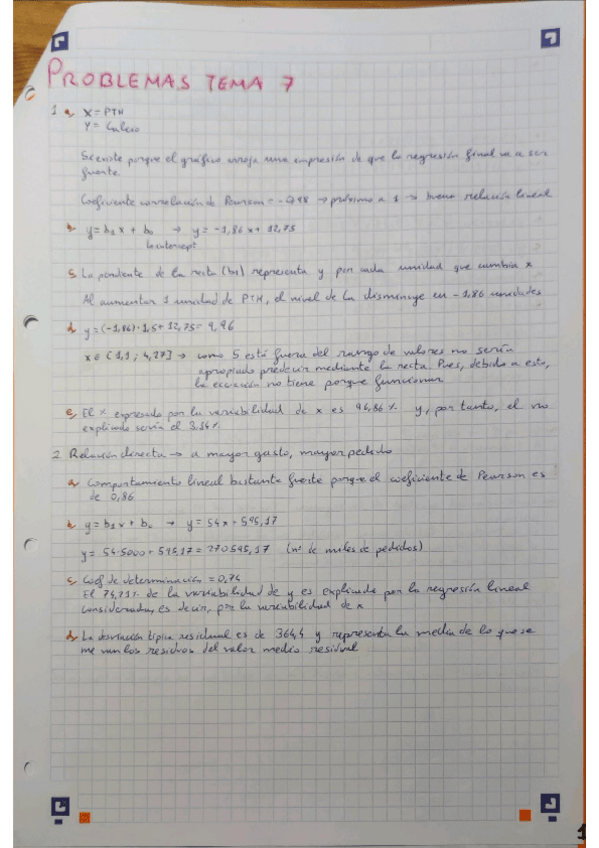 PROBLEMAS TEMA 7
1 a, X = PTH
Y = Calcio
Si existe porque el gráfico arroja una impresión de que la regresión final va a ser
fuerte.
Coeficiente correlación de Pearson = -0,98 → próximo a 1 → buena relación lineal
b, y = b₁x + b₀ → y = -1,86x + 12,75
intercept
c, La pendiente de la recta (b₁) representa y por cada unidad que cambia x
Al aumentar 1 unidad de PTH, el nivel de Ca disminuye en -1,86 unidades
d, y = (-1,86)·1,5 + 12,75 = 9,96
x ∈ (1,1 ; 4,27] → como 5 está fuera del rango de valores no sería
apropiado predecir mediante la recta. Pues, debido a esto,
la ecuación no tiene porque funcionar
e, El % expresado por la variabilidad de x es 96,86% y, por tanto, el no
explicado sería el 3.14%
2 Relación directa → a mayor gasto, mayor pedido
a, Comportamiento lineal bastante fuerte porque el coeficiente de Pearson es
de 0,86
b, y = b₁x + b₀ → y = 54x + 595,17
y = 54·5000 + 595,17 = 270595,17 (nº de miles de pedidos)
c, Coef de determinación = 0,74
El 74,21% de la variabilidad de y es explicada por la regresión lineal
considerada, es decir, por la variabilidad de x
d, La desviación típica residual es de 364,4 y representa la media de lo que se
me van los residuos del valor medio residual
1